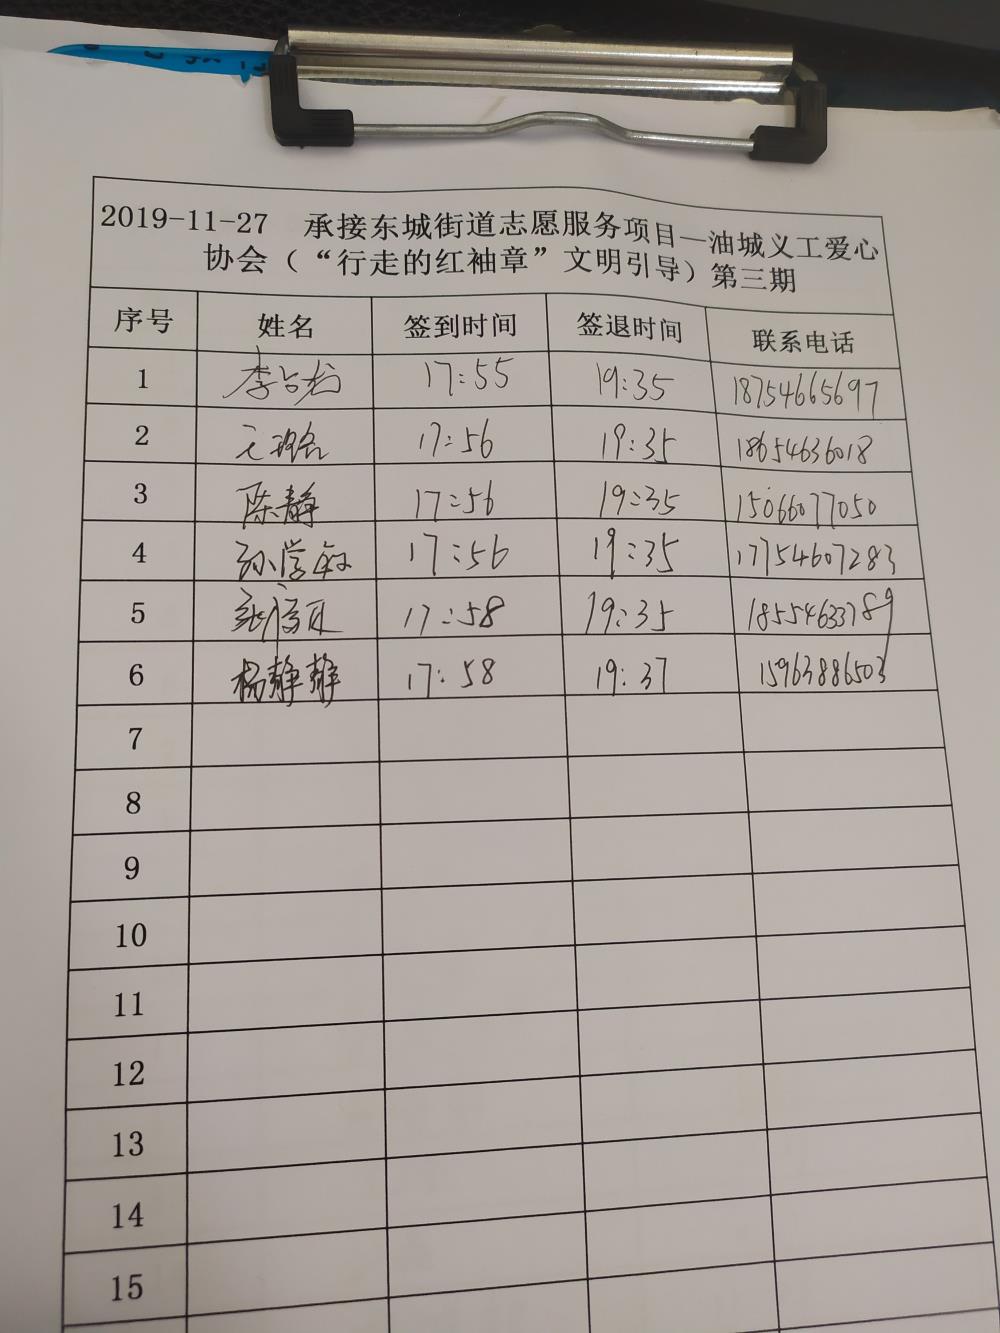 2019-11-27 承接东城街道志愿服务项目—油城义工爱心
协会（“行走的红袖章”文明引导）第三期
序号 姓名 签到时间 签退时间 联系电话
1 李占龙 17:55 19:35 18754665697
2 17:56 19:35 18654636018
3 陈静 17:56 19:35 15066077050
4 孙学敏 17:56 19:35 17754607283
5 17:58 19:35 18554633789
6 杨静静 17:58 19:37 15963886503
7
8
9
10
11
12
13
14
15